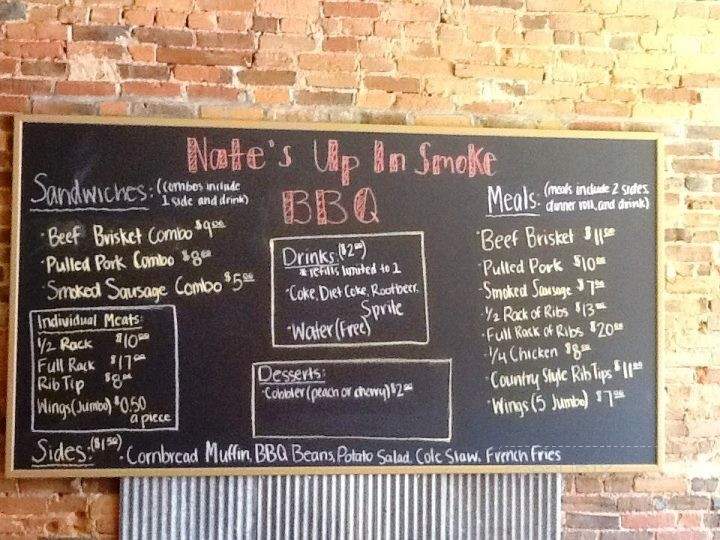 Nate's Up In Smoke
BBQ
Sandwiches: (combos include
1 side and drink)
·Beef Brisket Combo $9.00
·Pulled Pork Combo $8.00
·Smoked Sausage Combo $5.00
Individual Meats:
1/2 Rack $10.00
Full Rack $17.00
Rib Tip $8.00
Wings (Jumbo) $0.50
a piece
Drinks: ($2.00)
*refills limited to 1
·Coke, Diet Coke, Rootbeer,
Sprite
·Water (Free)
Desserts:
·Cobbler (peach or cherry) $2.00
Meals: (meals include 2 sides,
dinner roll, and drink)
·Beef Brisket $11.00
·Pulled Pork $10.00
·Smoked Sausage $7.00
·1/2 Rack of Ribs $13.00
·Full Rack of Ribs $20.00
·1/4 Chicken $8.00
·Country Style Rib Tips $11.00
·Wings (5 Jumbo) $7.00
Sides: ($1.50) ·Cornbread Muffin, BBQ Beans, Potato Salad, Cole Slaw, French Fries